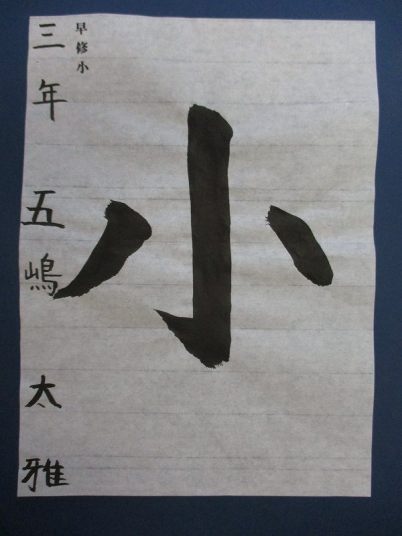 小
早修小
三年 五嶋 太雅